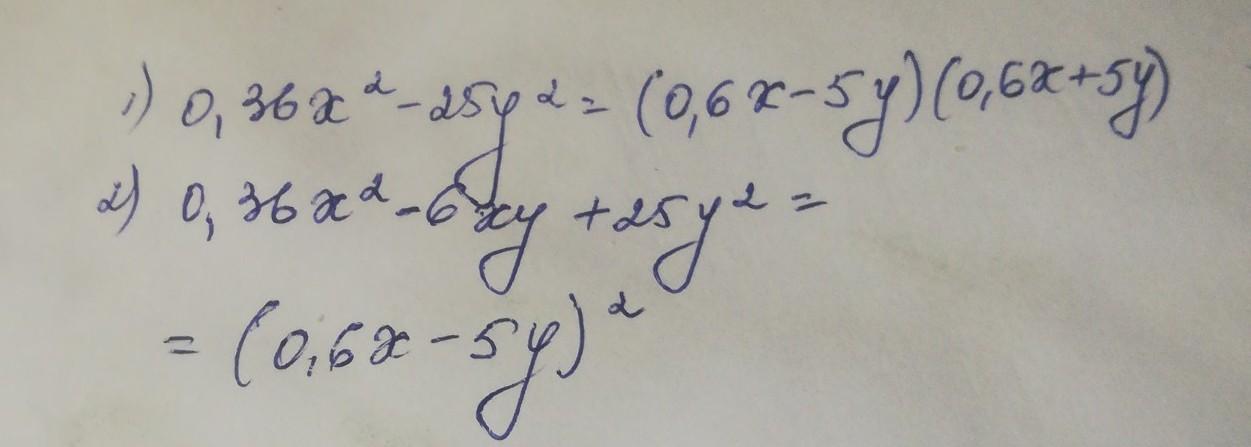 1) 0,36x² - 25y² = (0,6x - 5y)(0,6x + 5y)
2) 0,36x² - 6xy + 25y² =
= (0,6x - 5y)²